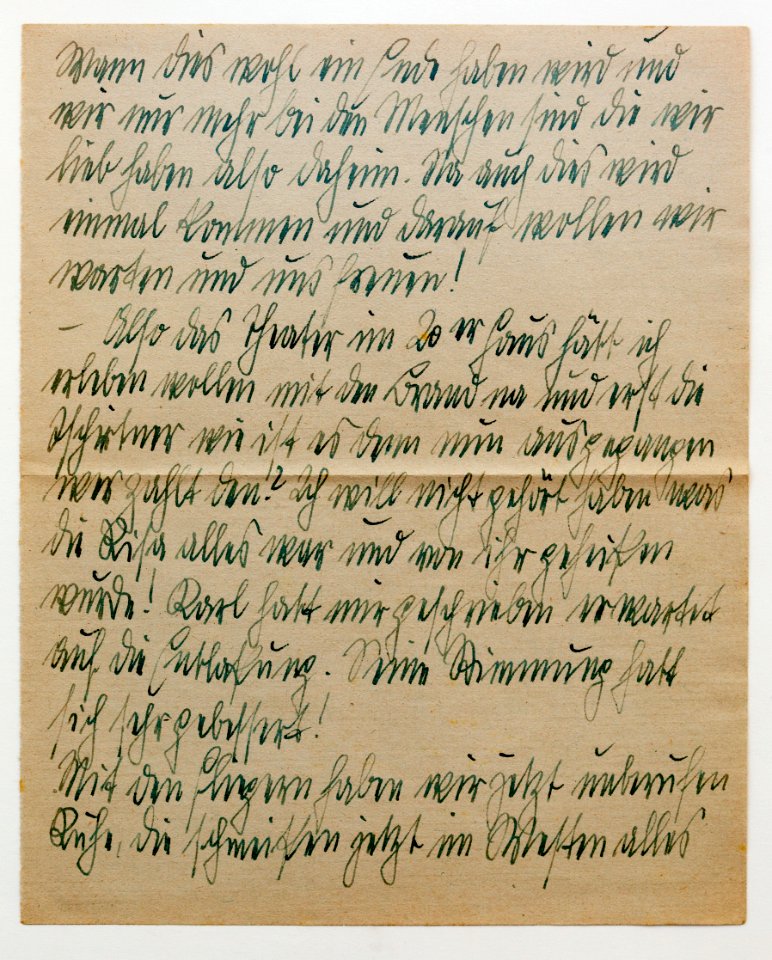 Wann dies wohl ein Ende haben wird und
wir nur mehr bei den Menschen sind die wir
lieb haben also daheim. Na auch dies wird
einmal kommen und darauf wollen wir
warten und uns freuen!
– Also das Theater im 20er Haus hätt ich
erleben wollen mit den Brand na und erst die
Tschirtner wie ist es denn nun ausgegangen
wer zahlt den? Ich will nicht gehört haben was
die Risa alles war und von ihr geheißen
wurde! Karl hatt mir geschrieben er wartet
auf die Entlaßung. Seine Stimmung hatt
sich sehr gebessert!
Mit den Fliegern haben wir jetzt unberufen
Ruhe, die schmeißen jetzt im Westen alles